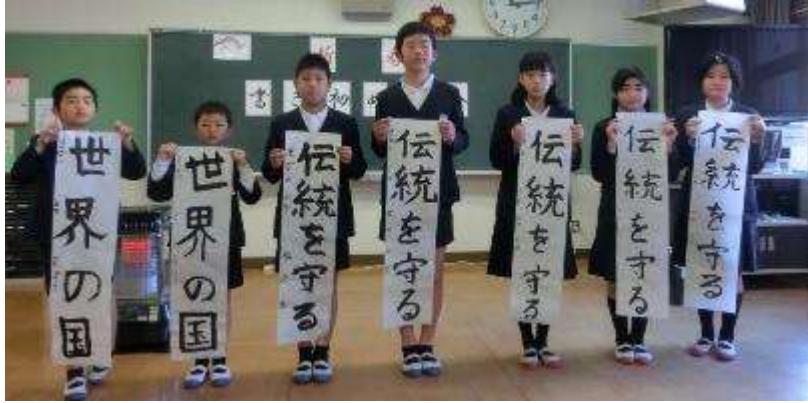 書き初め
世界の国
世界の国
伝統を守る
伝統を守る
伝統を守る
伝統を守る
伝統を守る